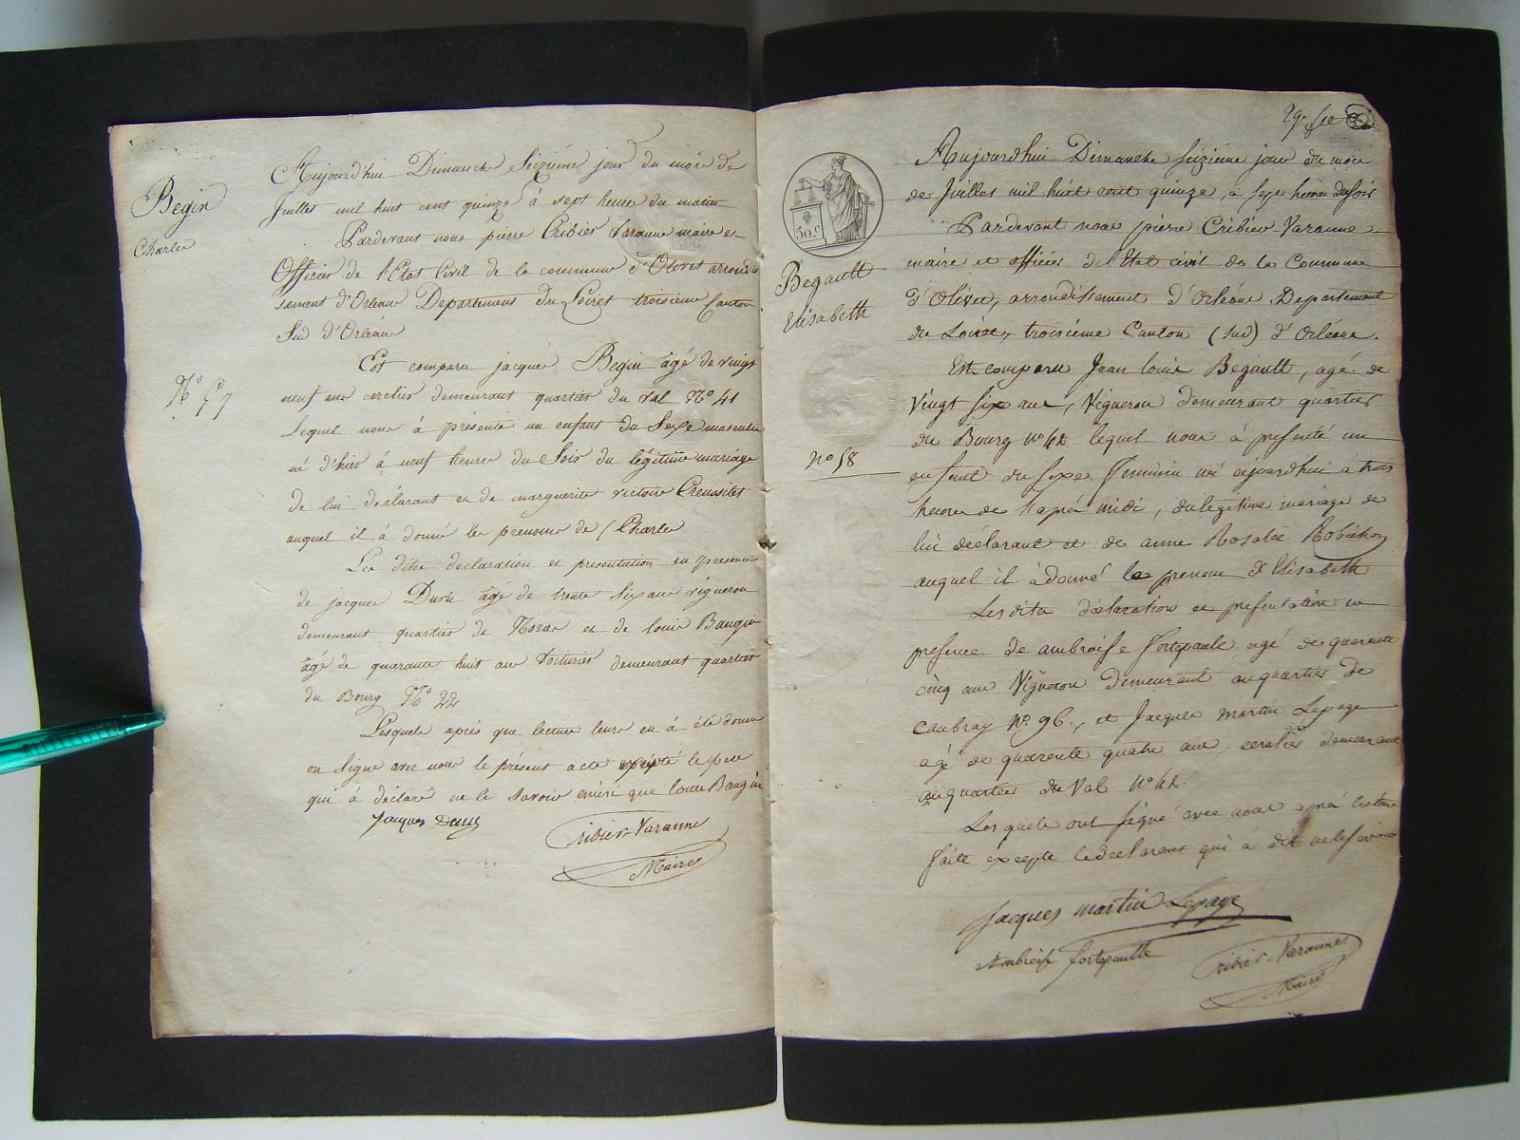 Begin
Charle
Nº 57
Aujourdhui Dimanche Seizieme jour du mois de
Juillet mil huit cent quinze à sept heures du matin
Pardevant nous pierre Cribier Varanne maire et
Officier de l'Etat Civil de la commune d'Olivet arrondis
sement d'Orleans Departement du Loiret troisieme Canton
Sud d'Orleans
Est comparu jacque Begin âgé de vingt
neuf ans cerclier demeurant quartier du val Nº 41
Lequel nous à présenté un enfant du Sexe masculin
né d'hier à neuf heures du Soir du légitime mariage
de lui déclarant et de marguerite victoire
auquel il à donné le prenom de Charle
Les dites declaration et presentation en presence
de jacque Duru âgé de trente Six ans vigneron
demeurant quartier de et de louis Baugin
âgé de quarante huit ans voiturier demeurant quartier
du Bourg Nº 22
Lesquels après que lecture leurs en à été donné
on Signé avec nous le présent acte excepté le pere
qui à déclaré ne le Savoir ainsi que louis Baugin
Jacques Duru
Cribier-Varanne
Maire
29. fe
50.C
Begault
Elisabeth
nº 58
Aujourdhui Dimanche Seizieme jour du mois
de Juillet mil huit cent quinze, à sept heures du soir
Pardevant nous pierre Cribier Varanne
maire et officier de l'Etat civil de la Commune
d'Olivet, arrondissement d'Orléans Departement
du Loiret, troisième Canton (Sud) d'Orléans.
Est comparu Jean louis Begault, agé de
Vingt six ans, Vigneron demeurant quartier
du Bourg nº 42 lequel nous à présenté un
enfant du sexe Feminin né aujourdhui à trois
heures de l'après midi, du légitime mariage de
lui déclarant et de anne Rosalie Robichon
auquel il à donné le prenom d'Elisabeth
Les dites déclaration et présentation en
presence de ambroise Fortepaulle agé de quarante
cinq ans Vigneron demeurant au quartier de
Caubray Nº 96., et Jacques martin Lepage
agé de quarente quatre ans cerclier demeurant
au quartier du Val Nº 42.
Lesquels ont signé avec nous après lecture
faite excepté le declarant qui a dit ne le savoir
Jacques martin Lepage
Ambroise fortepaulle
Cribier-Varanne
Maire